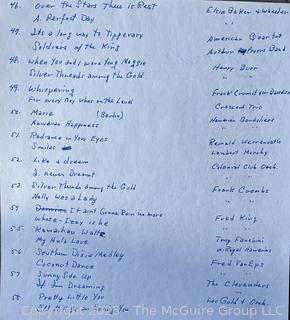 46. Over the Stars There is Rest Elsie Baker & Wheeler
A. Perfect Day
47. Its a long way to Tipperary American Quartet
Soldiers of the King Arthur Pryors Band
48. When You and I were Young Maggie Henry Burr
Silver Threads among the Gold " "
49. Whispering Frank Crumit
For every Boy whos on the Level Crescent Trio
50. Marie (Berlin) Hawaiian Guardsmen
Hawaiian Happiness " "
51. Radiance in Your Eyes Reinald Werrenrath
Smiles Lambert Murphy
52. Like a dream Colonial Club Orch.
I never Dreamt
53. Silver Threads among the Gold Frank Coombs
Nelly Was a Lady "
54 It Aint Gonna Rain no more Frank King
whose-Izzy is he "
55. Kawaihau Waltz
My Hula Love Royal Hawaiians
56 Southern Dixie Medley Fred VanEps
Coconut Dance "
57 Sunny Side Up The Clevanders
If I'm Dreaming
58. Pretty Little You Lou Gold & Orch.
You
Copyright The McGuire Group LLC